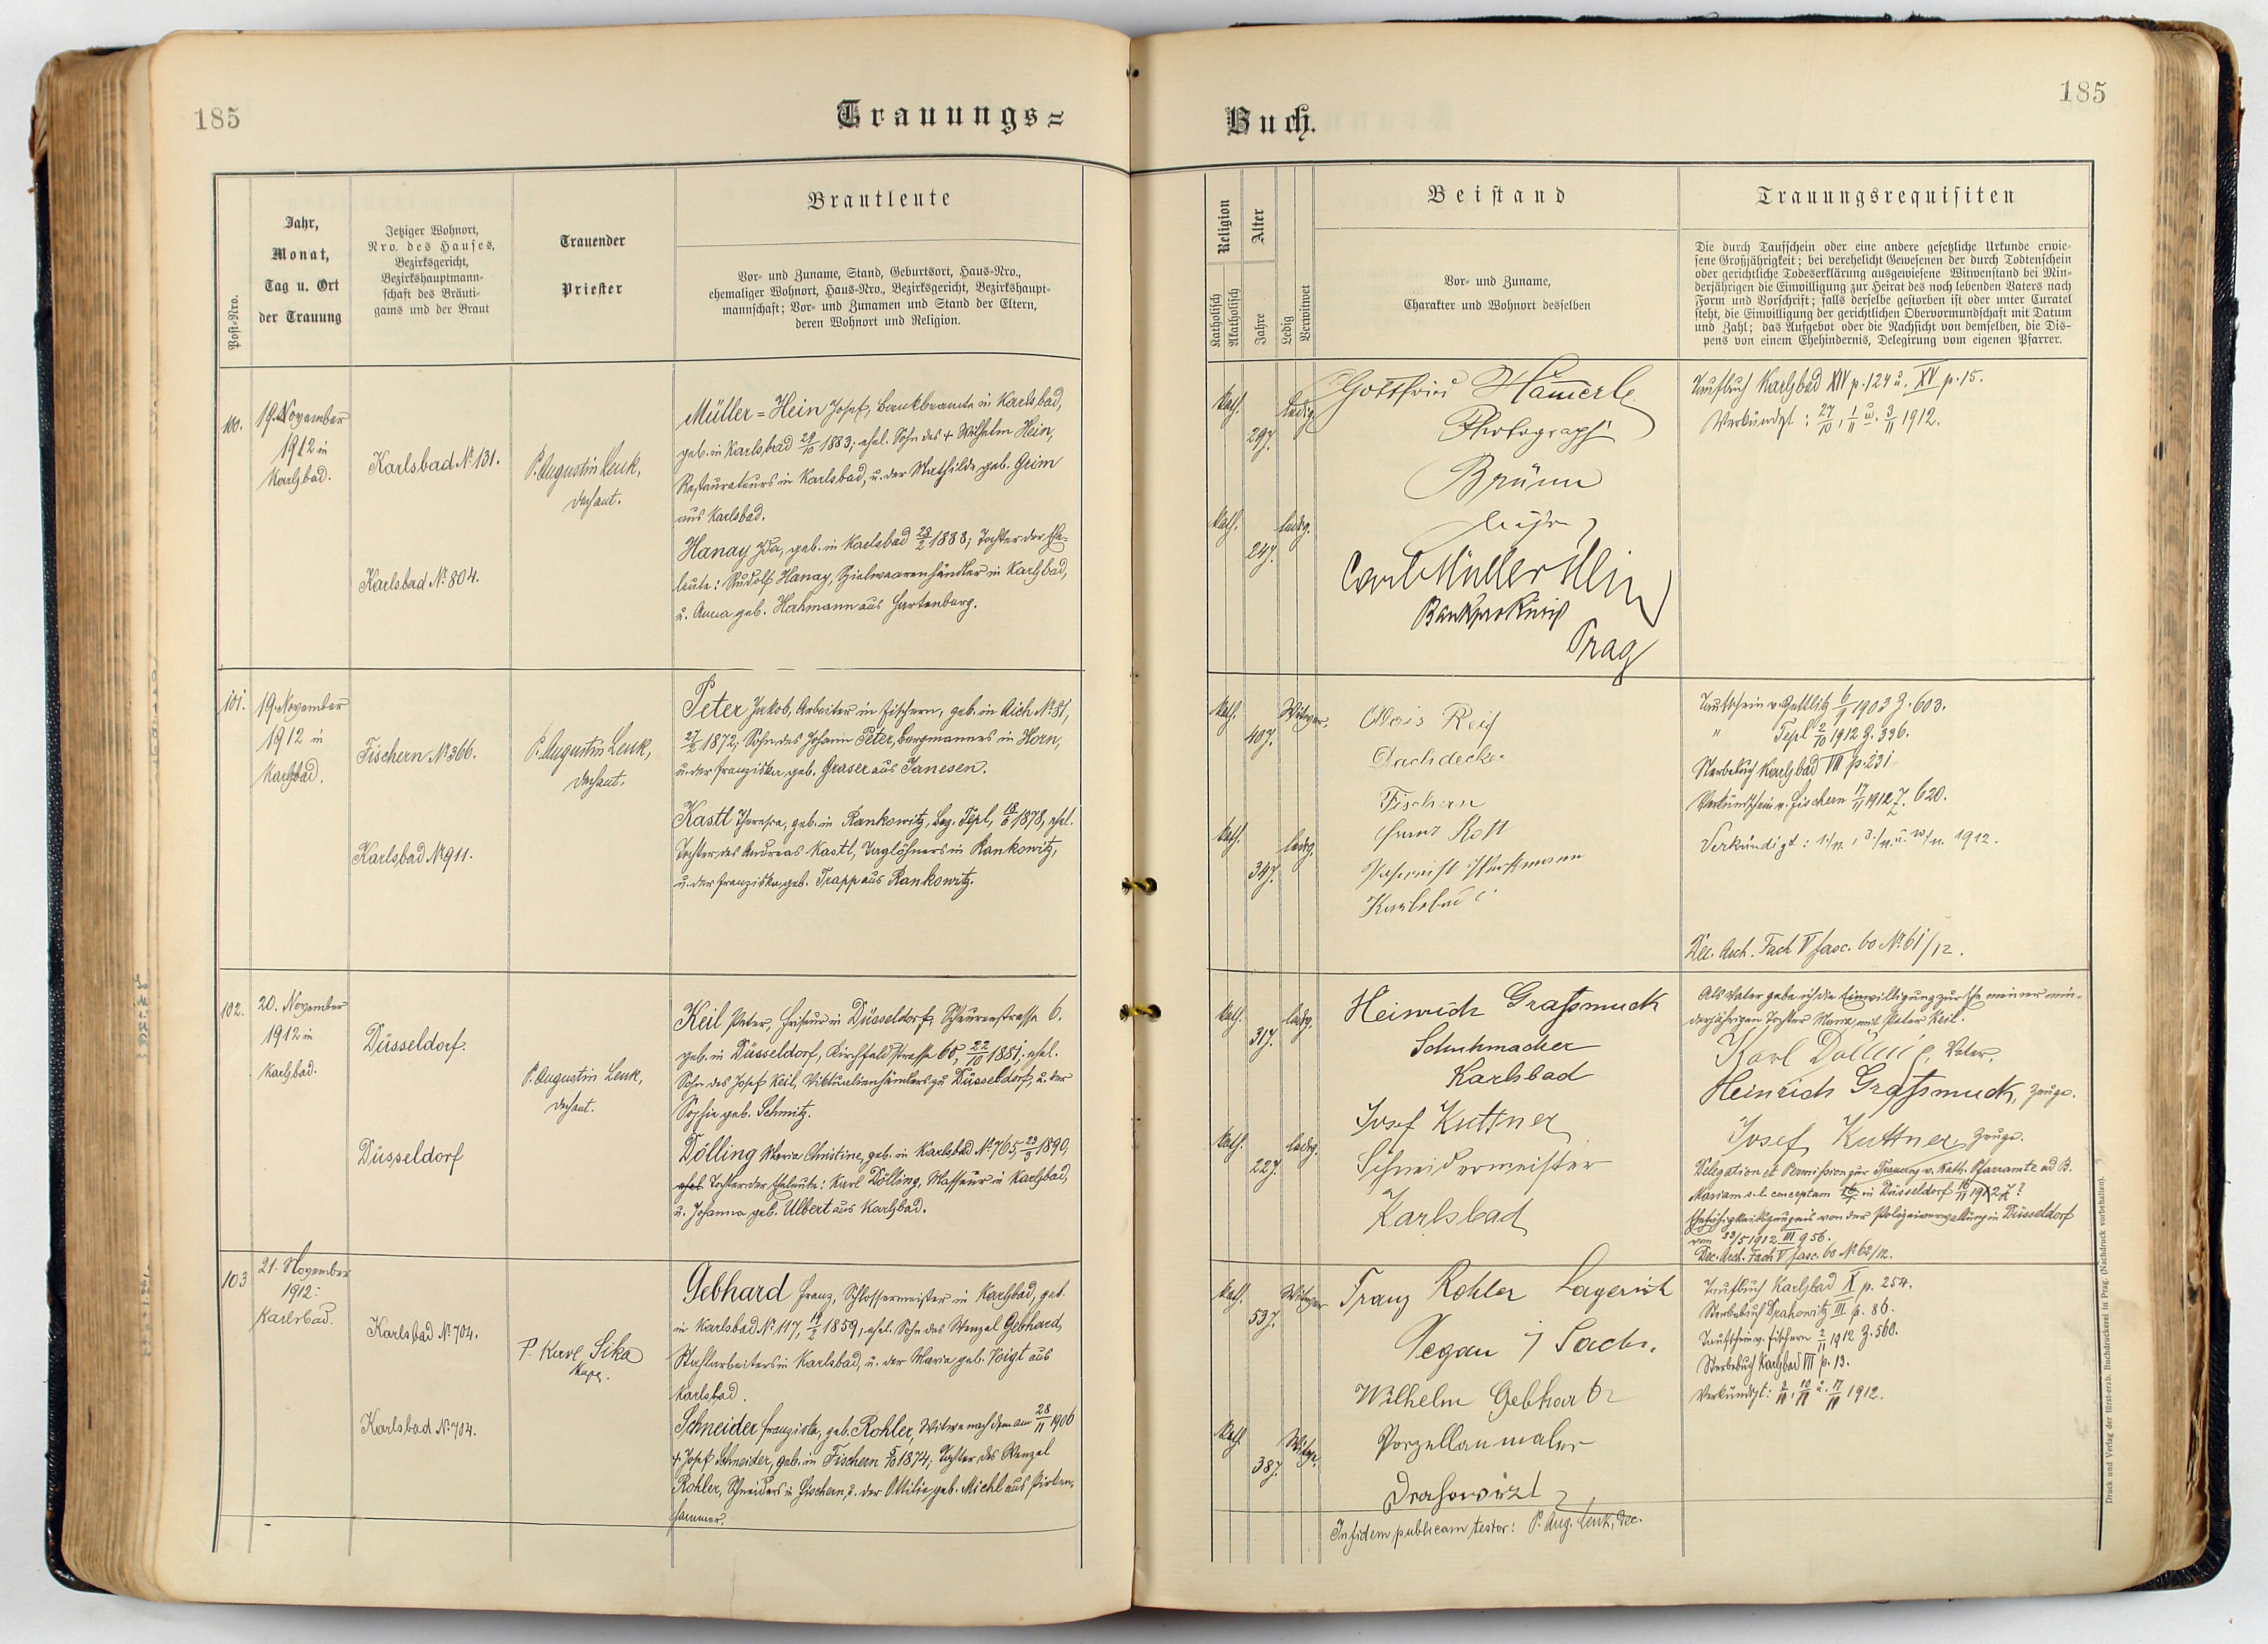 185
Trauungs=
Post-Nro.
Jahr,
Monat,
Tag u. Ort
der Trauung
Jetziger Wohnort,
Nro. des Hauses,
Bezirksgericht,
Bezirkshauptmann-
schaft des Bräuti-
gams und der Braut
Trauender
Priester
Brautleute
Vor- und Zuname, Stand, Geburtsort, Haus-Nro.,
ehemaliger Wohnort, Haus-Nro., Bezirksgericht, Bezirkshaupt-
mannschaft; Vor- und Zunamen und Stand der Eltern,
deren Wohnort und Religion.
100.
19. November
1912 in
Karlsbad.
Karlsbad № 131.
Karlsbad № 804.
P. Augustin Lenk,
Dechant.
Müller=Hein Josef, Bankbeamte in Karlsbad,
geb. in Karlsbad 29/10 1883; ehel. Sohn des + Wilhelm Hein,
Restaurateurs in Karlsbad, u. der Mathilde geb. Grim
aus Karlsbad.
Hanay Ida, geb. in Karlsbad 28/2 1888; Tochter der Ehe-
leute: Rudolf Hanay, Spielwaarenhändler in Karlsbad,
u. Anna geb. Hahmann aus Hartenberg.
101.
19. November
1912 in
Karlsbad.
Fischern № 366.
Karlsbad № 911.
P. Augustin Lenk,
Dechant.
Peter Jakob, Arbeiter in Fischern, geb. in Aich № 81,
27/2 1872; Sohn des Johann Peter, Bergmannes in Horn,
u. der Franziska, geb. Graser aus Janesen.
Kastl Theresia, geb. in Rankowitz, Bez. Tepl, 18/6 1878, ehel.
Tochter des Andreas Kastl, Taglöhners in Rankowitz,
u. der Franziska, geb. Trapp aus Rankowitz.
102.
20. November
1912 in
Karlsbad.
Düsseldorf.
Düsseldorf
P. Augustin Lenk,
Dechant.
Keil Peter, Friseur in Düsseldorf, Scheurenstrasse 6.
geb. in Düsseldorf, Kirchfeldstrasse 60, 22/10 1881; ehel.
Sohn des Josef Keil, Viktualienhändlers zu Düsseldorf, u. der
Sophie geb. Schmitz.
Dölling Maria Christine, geb. in Karlsbad № 765, 23/3 1890;
ehel. Tochter der Eheleute: Karl Dölling, Masseur in Karlsbad,
u. Johanna geb. Ulbert aus Karlsbad.
103
21. November
1912:
Karlsbad.
Karlsbad № 704.
Karlsbad № 704.
P. Karl Sika
Kapl.
Gebhard Franz, Schlossermeister in Karlsbad, geb.
in Karlsbad № 117, 19/2 1859; ehel. Sohn des Wenzel Gebhard,
Stahlarbeiters in Karlsbad, u. der Maria, geb. Voigt aus
Karlsbad.
Schneider Franziska, geb. Rohler, Witwe nach dem am 28/11 1906
+ Josef Schneider, geb. in Fischern 5/10 1874; Tochter des Wenzel
Rohler, Schneiders in Fischern, u. der Ottilie, geb. Michl aus Pirken-
hammer.
185
Buch.
Religion
Katholisch
Akatholisch
Alter
Jahre
Ledig
Verwitwet
Beistand
Vor- und Zuname,
Charakter und Wohnort desselben
Trauungsrequisiten
Die durch Taufschein oder eine andere gesetzliche Urkunde erwie-
sene Großjährigkeit; bei verehelicht Gewesenen der durch Todtenschein
oder gerichtliche Todeserklärung ausgewiesene Witwenstand bei Min-
derjährigen die Einwilligung zur Heirat des noch lebenden Vaters nach
Form und Vorschrift; falls derselbe gestorben ist oder unter Curatel
steht, die Einwilligung der gerichtlichen Obervormundschaft mit Datum
und Zahl; das Aufgebot oder die Nachsicht von demselben, die Dis-
pens von einem Ehehindernis, Delegirung vom eigenen Pfarrer.
kath.
29 J.
ledig.
kath.
24 J.
ledig.
Gottfried Hämerle
Photograph
Brünn
Carl Müller Hein
Bankprokurist
Prag
Taufbuch Karlsbad XIV p. 124 u. XV p. 15.
Verkündigt: 27/10, 1/11 u. 3/11 1912.
kath.
40 J.
Witwer.
kath.
34 J.
ledig.
Alois Reif
Dachdecker
Fischern
Franz Rott
Karlsbad
Taufschein v. Gettlitz 6/9 1903 Z. 603.
" Tepl 2/10 1912 Z. 336.
Sterbebuch Karlsbad VII p. 231
Verkündschein v. Fischern 17/11 1912 Z. 620.
Verkündigt: 1./11., 3./11. u. 10/11. 1912.
Dec. Arch. Fach V fasc. 60 № 61/12.
kath.
31 J.
ledig.
kath.
22 J.
ledig.
Heinrich Grassmuck
Schuhmacher
Karlsbad
Josef Kuttner
Schneidermeister
Karlsbad
Als Vater gebe ich die Einwilligung zur Ehe meiner min-
derjährigen Tochter Maria mit Peter Keil.
Karl Dölling, Vater.
Heinrich Grassmuck, Zeuge.
Josef Kuttner, Zeuge.
Delegation et Permission zur Trauung v. kath. Pfarramte ad B.
Mariam s. l. conceptam in Düsseldorf 16/11 1912 Z. ?
Ehefähigkeitszeugnis von der Polizeiverwaltung in Düsseldorf
vom 23/5 1912 III 956.
Dec. Arch. Fach V fasc. 60 № 62/12.
kath.
53 J.
Witwer
kath.
38 J.
Witwe.
Franz Rohler Lagerist
Pegau i Sachs.
Wilhelm Gebhart
Porzellanmaler
Drahowitz
Taufbuch Karlsbad X p. 254.
Sterbebuch Drahowitz III p. 86.
Taufschein v. Fischern 2/11 1912 Z. 560.
Sterbebuch Karlsbad VII p. 13.
Verkündigt: 3/11, 10/11 u. 17/11 1912.
In fidem publicam testor: P. Aug. Lenk, Dec.
Druck und Verlag der fürst-erzb. Buchdruckerei in Prag. (Nachdruck vorbehalten).